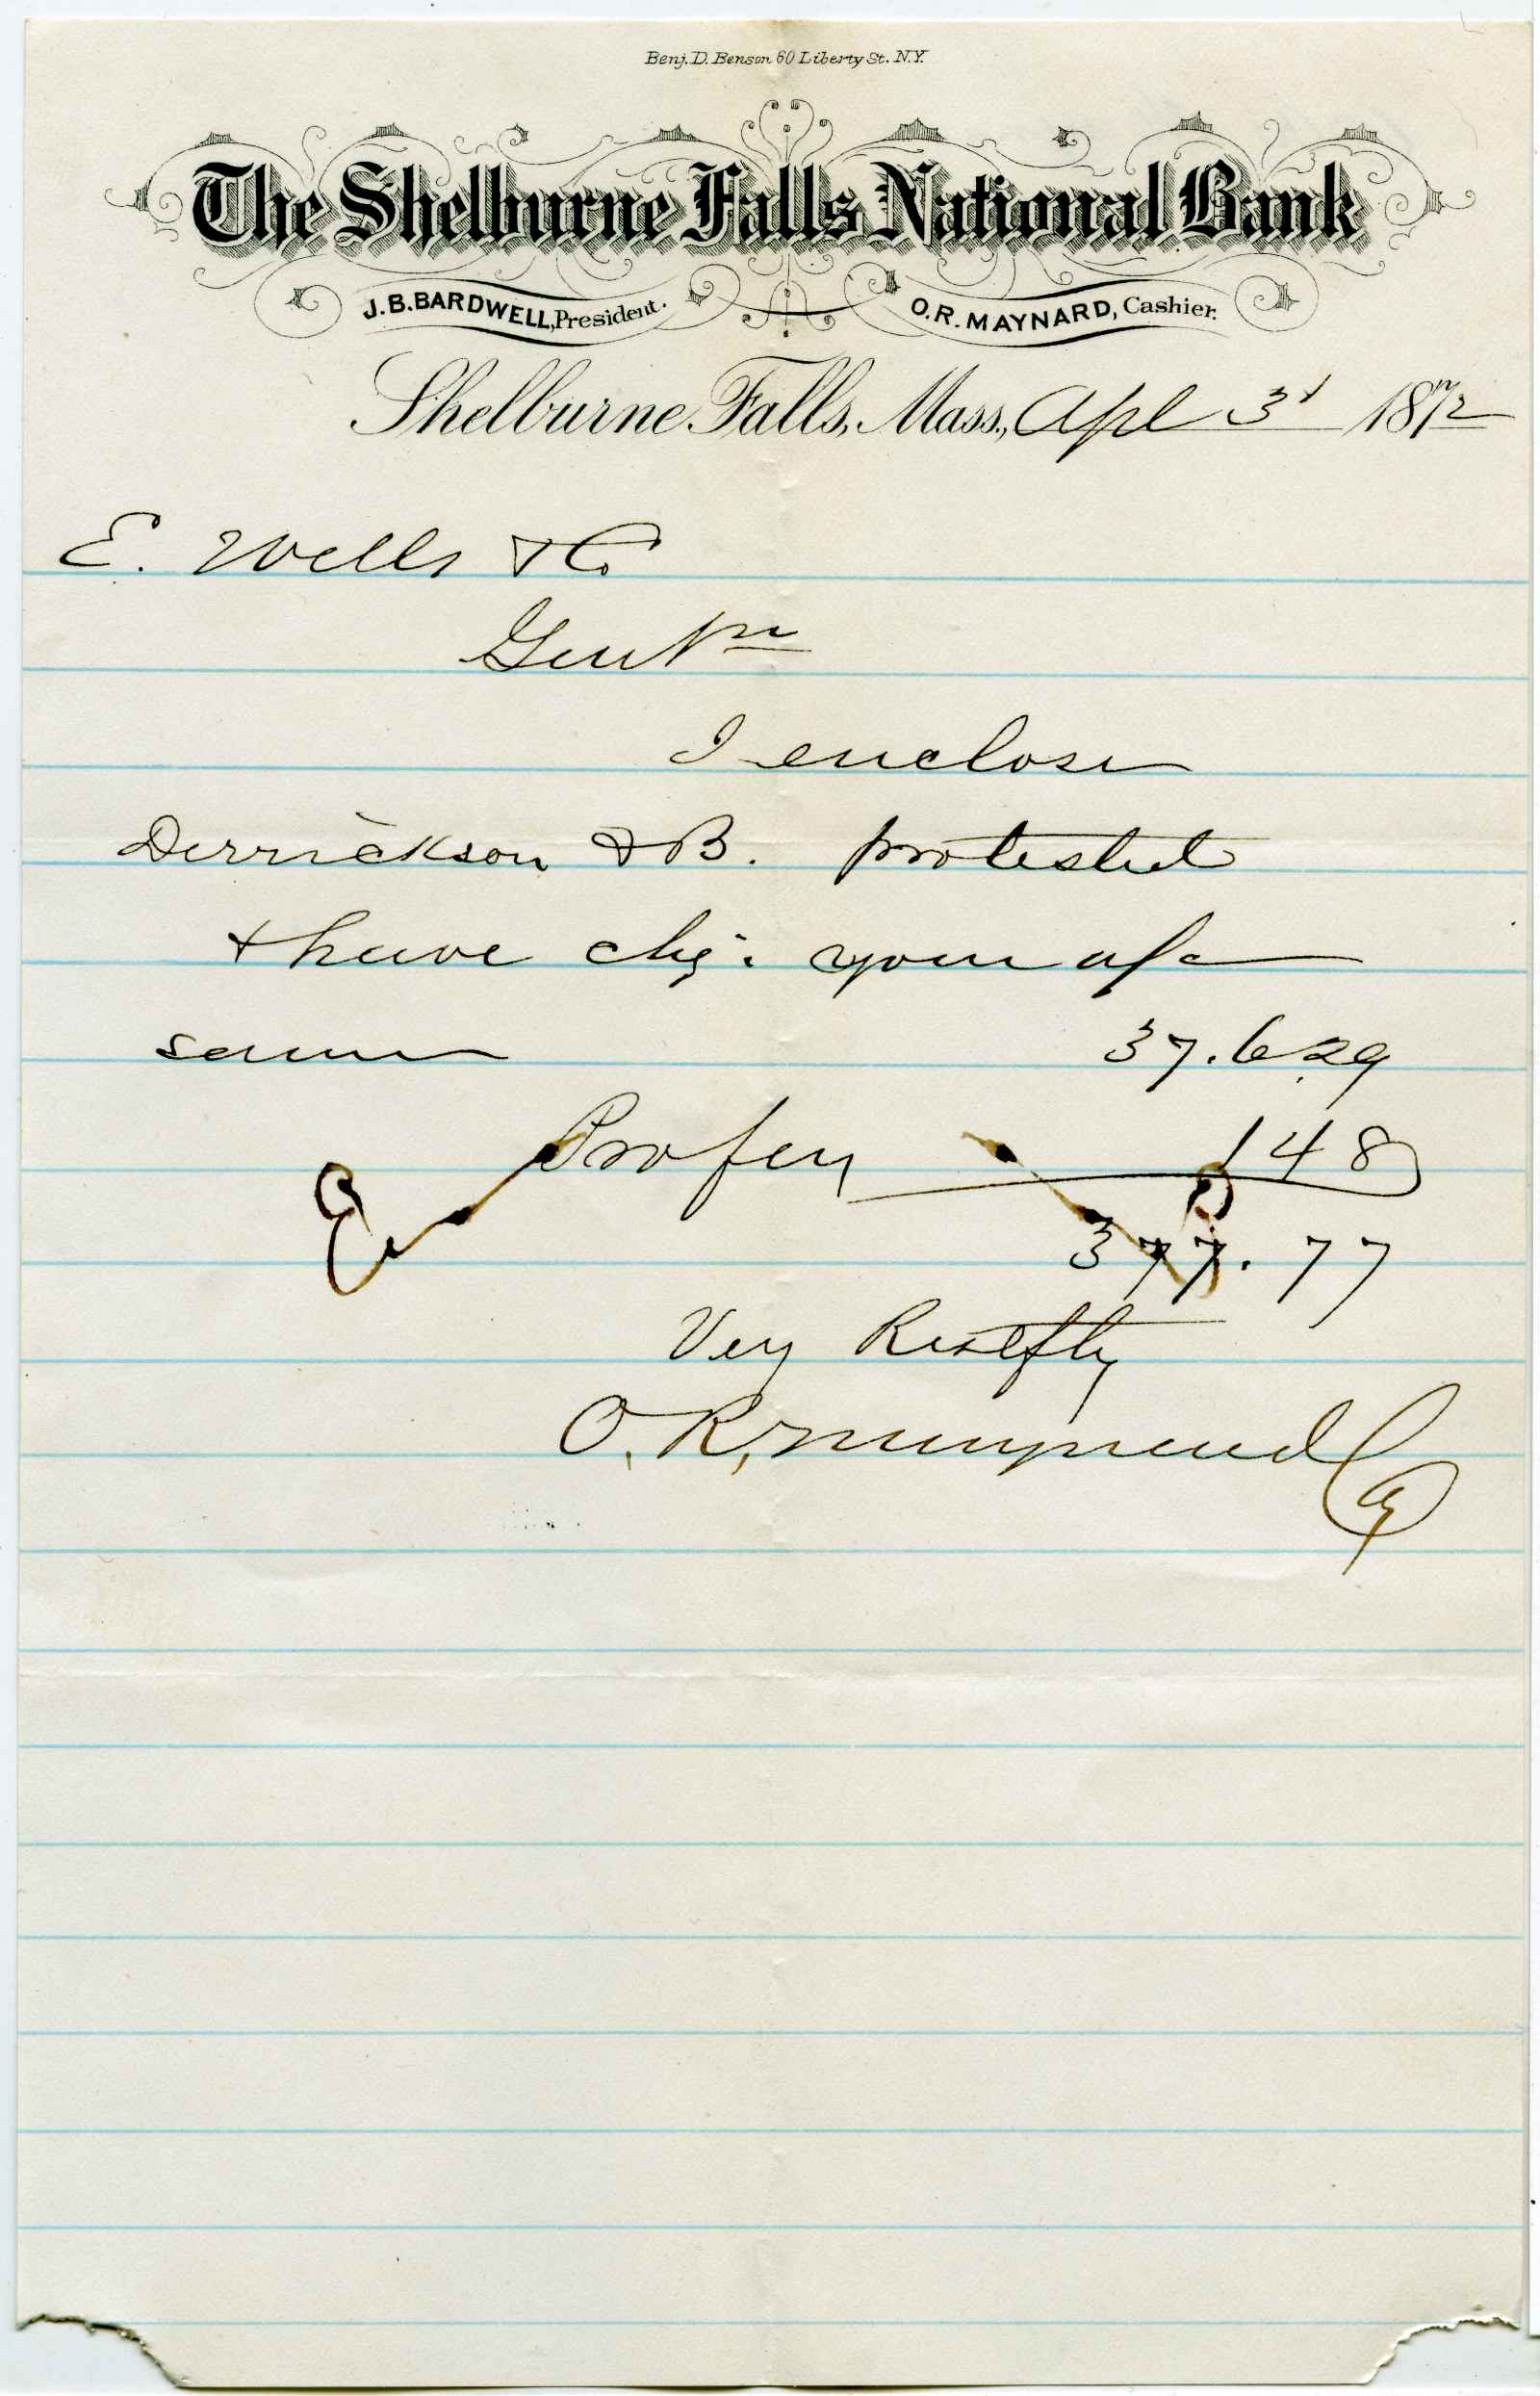 Benj. D. Benson 60 Liberty St. N.Y.
The Shelburne Falls National Bank
J. B. BARDWELL, President. O. R. MAYNARD, Cashier.
Shelburne Falls, Mass., Apl 3d 1872
E. Wells & Co
Gentm
I enclose
Derrickson & B. protested
& have chg. your a/c
same 376.29
Pro fees 148
377.77
Very Respfly
O. R. Maynard